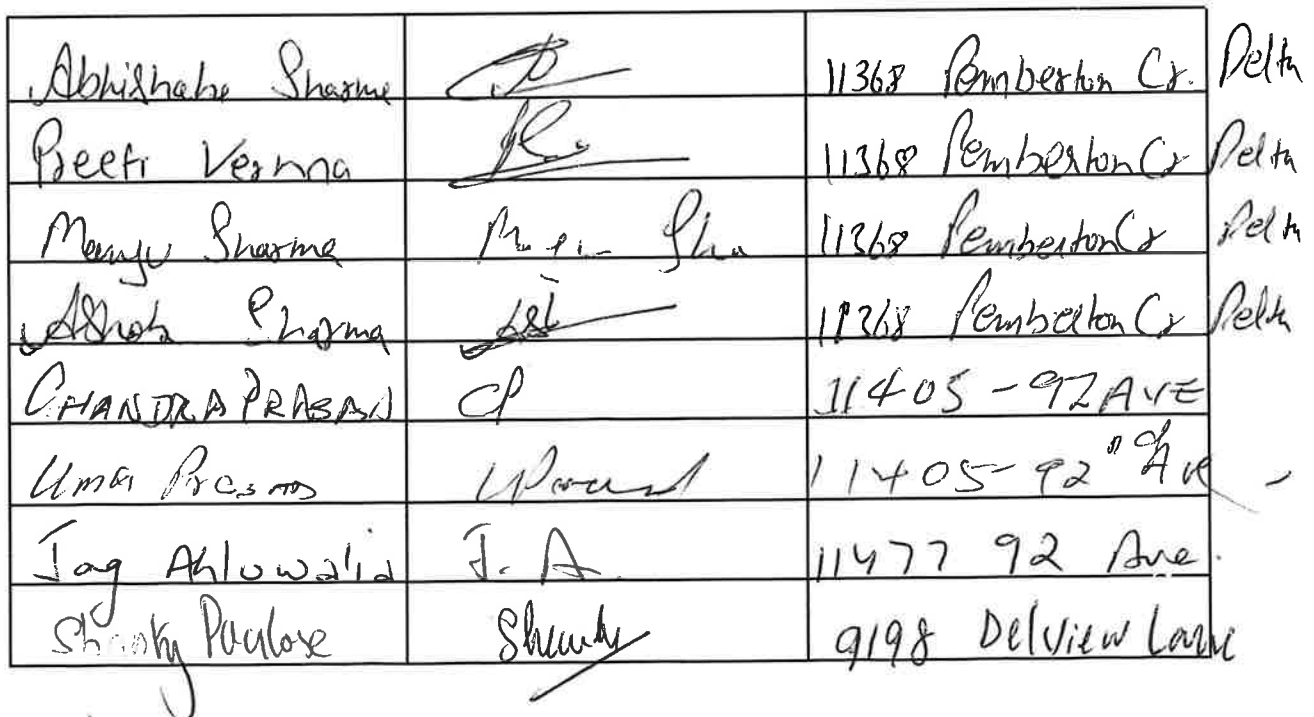 Abhishake Sharma 11368 Pemberton Cr. Delta
Preeti Verma 11368 Pemberton Cr Delta
Manju Sharma 11368 Pemberton Cr Delta
Ashok Sharma 11368 Pemberton Cr Delta
CHANDRA PRASAD CP 11405-92 AVE
Uma Prasad UPrasad 11405-92nd Ave
Jag Ahluwalia J. A. 11477 92 Ave.
Paulose 9198 Delview Lane